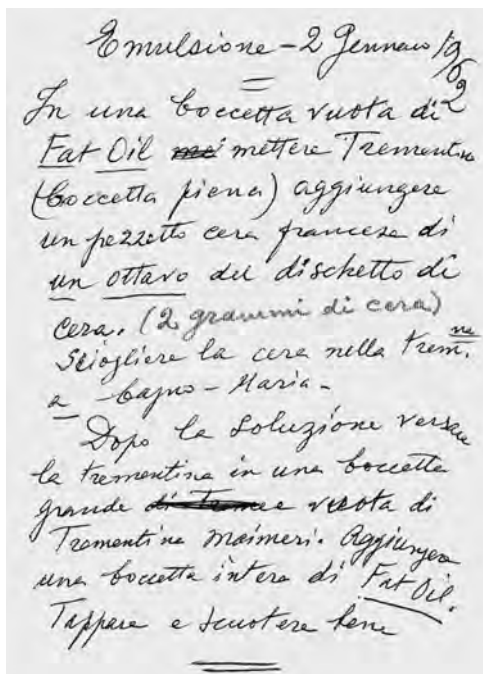 Emulsione - 2 Gennaio 1962
In una boccetta vuota di
Fat Oil mettere Trementina
(boccetta piena) aggiungere
un pezzetto cera francese di
un ottavo del dischetto di
cera. (2 grammi di cera)
Sciogliere la cera nella trem.ne
a bagno-Maria-
Dopo la soluzione versare
la trementina in una boccetta
grande vuota di
Trementina Maimeri. Aggiungere
una boccetta intera di Fat Oil.
Tappare e scuotere bene